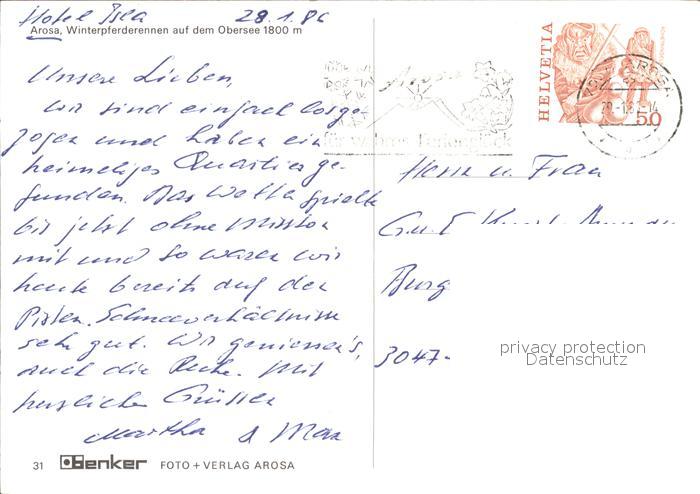 Hotel Isla 28.1.86
Arosa, Winterpferderennen auf dem Obersee 1800 m
Unsere Lieben,
wir sind einfach losge-
zogen und haben ein
heimeliges Quartier ge-
funden. Das Wetter spielte
bis jetzt ohne Misston
mit und so waren wir
heute bereits auf den
Pisten. Schneeverhältnisse
sehr gut. Wir geniessen's,
auch die Ruhe. Mit
herzlichen Grüssen
Martha & Max
31 benker FOTO + VERLAG AROSA
HELVETIA
50
AROSA
Arosa
Ferienglück
Herrn u. Frau
Burg
3047-
privacy protection
Datenschutz